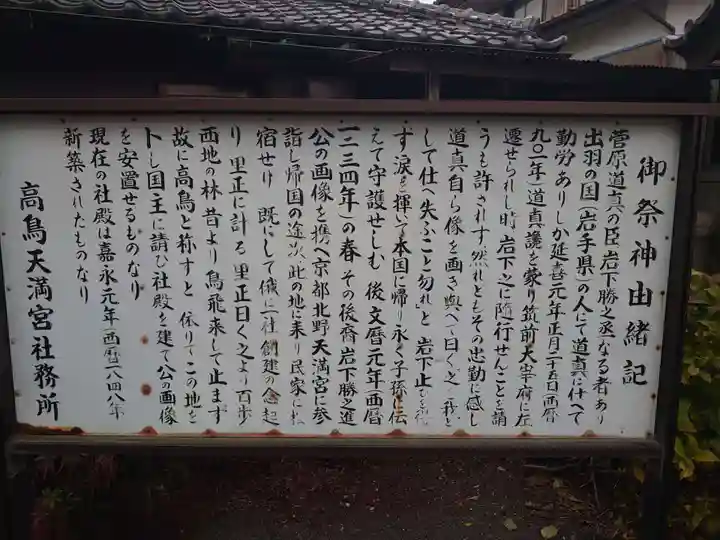 御祭神由緒記
菅原道真の臣(岩下勝之丞)なる者あり
出羽の国(岩手県)の人にて道真に仕へて
勤労ありしか延喜元年正月二十五日(西暦
九〇一年)道真讒を蒙り筑前大宰府に左
遷せられし時 岩下之に随行せんことを請
うも許されず然れどもその忠勤に感し
道真自ら像を画き与へて曰く之
して仕へ失ふこと勿れ」と 岩下止む
ず涙を揮いて本国に帰り永く子孫に伝
えて守護せしむ 後文暦元年(西暦
一二三四年)の春 その後裔岩下勝之進
公の画像を携へ京都北野天満宮に参
詣し帰国の途次此の地に来り民家に
宿せり 既にして俄に社創建の念起
り 里正に計る 里正曰く之より百歩
西地の林 昔より鳥飛来して止まず
故に高鳥と称すと 依りてこの地を
卜し国主に請ひ社殿を建て公の画像
を安置せるものなり
現在の社殿は嘉永元年(西暦一八四八年
新築されたものなり
高鳥天満宮社務所